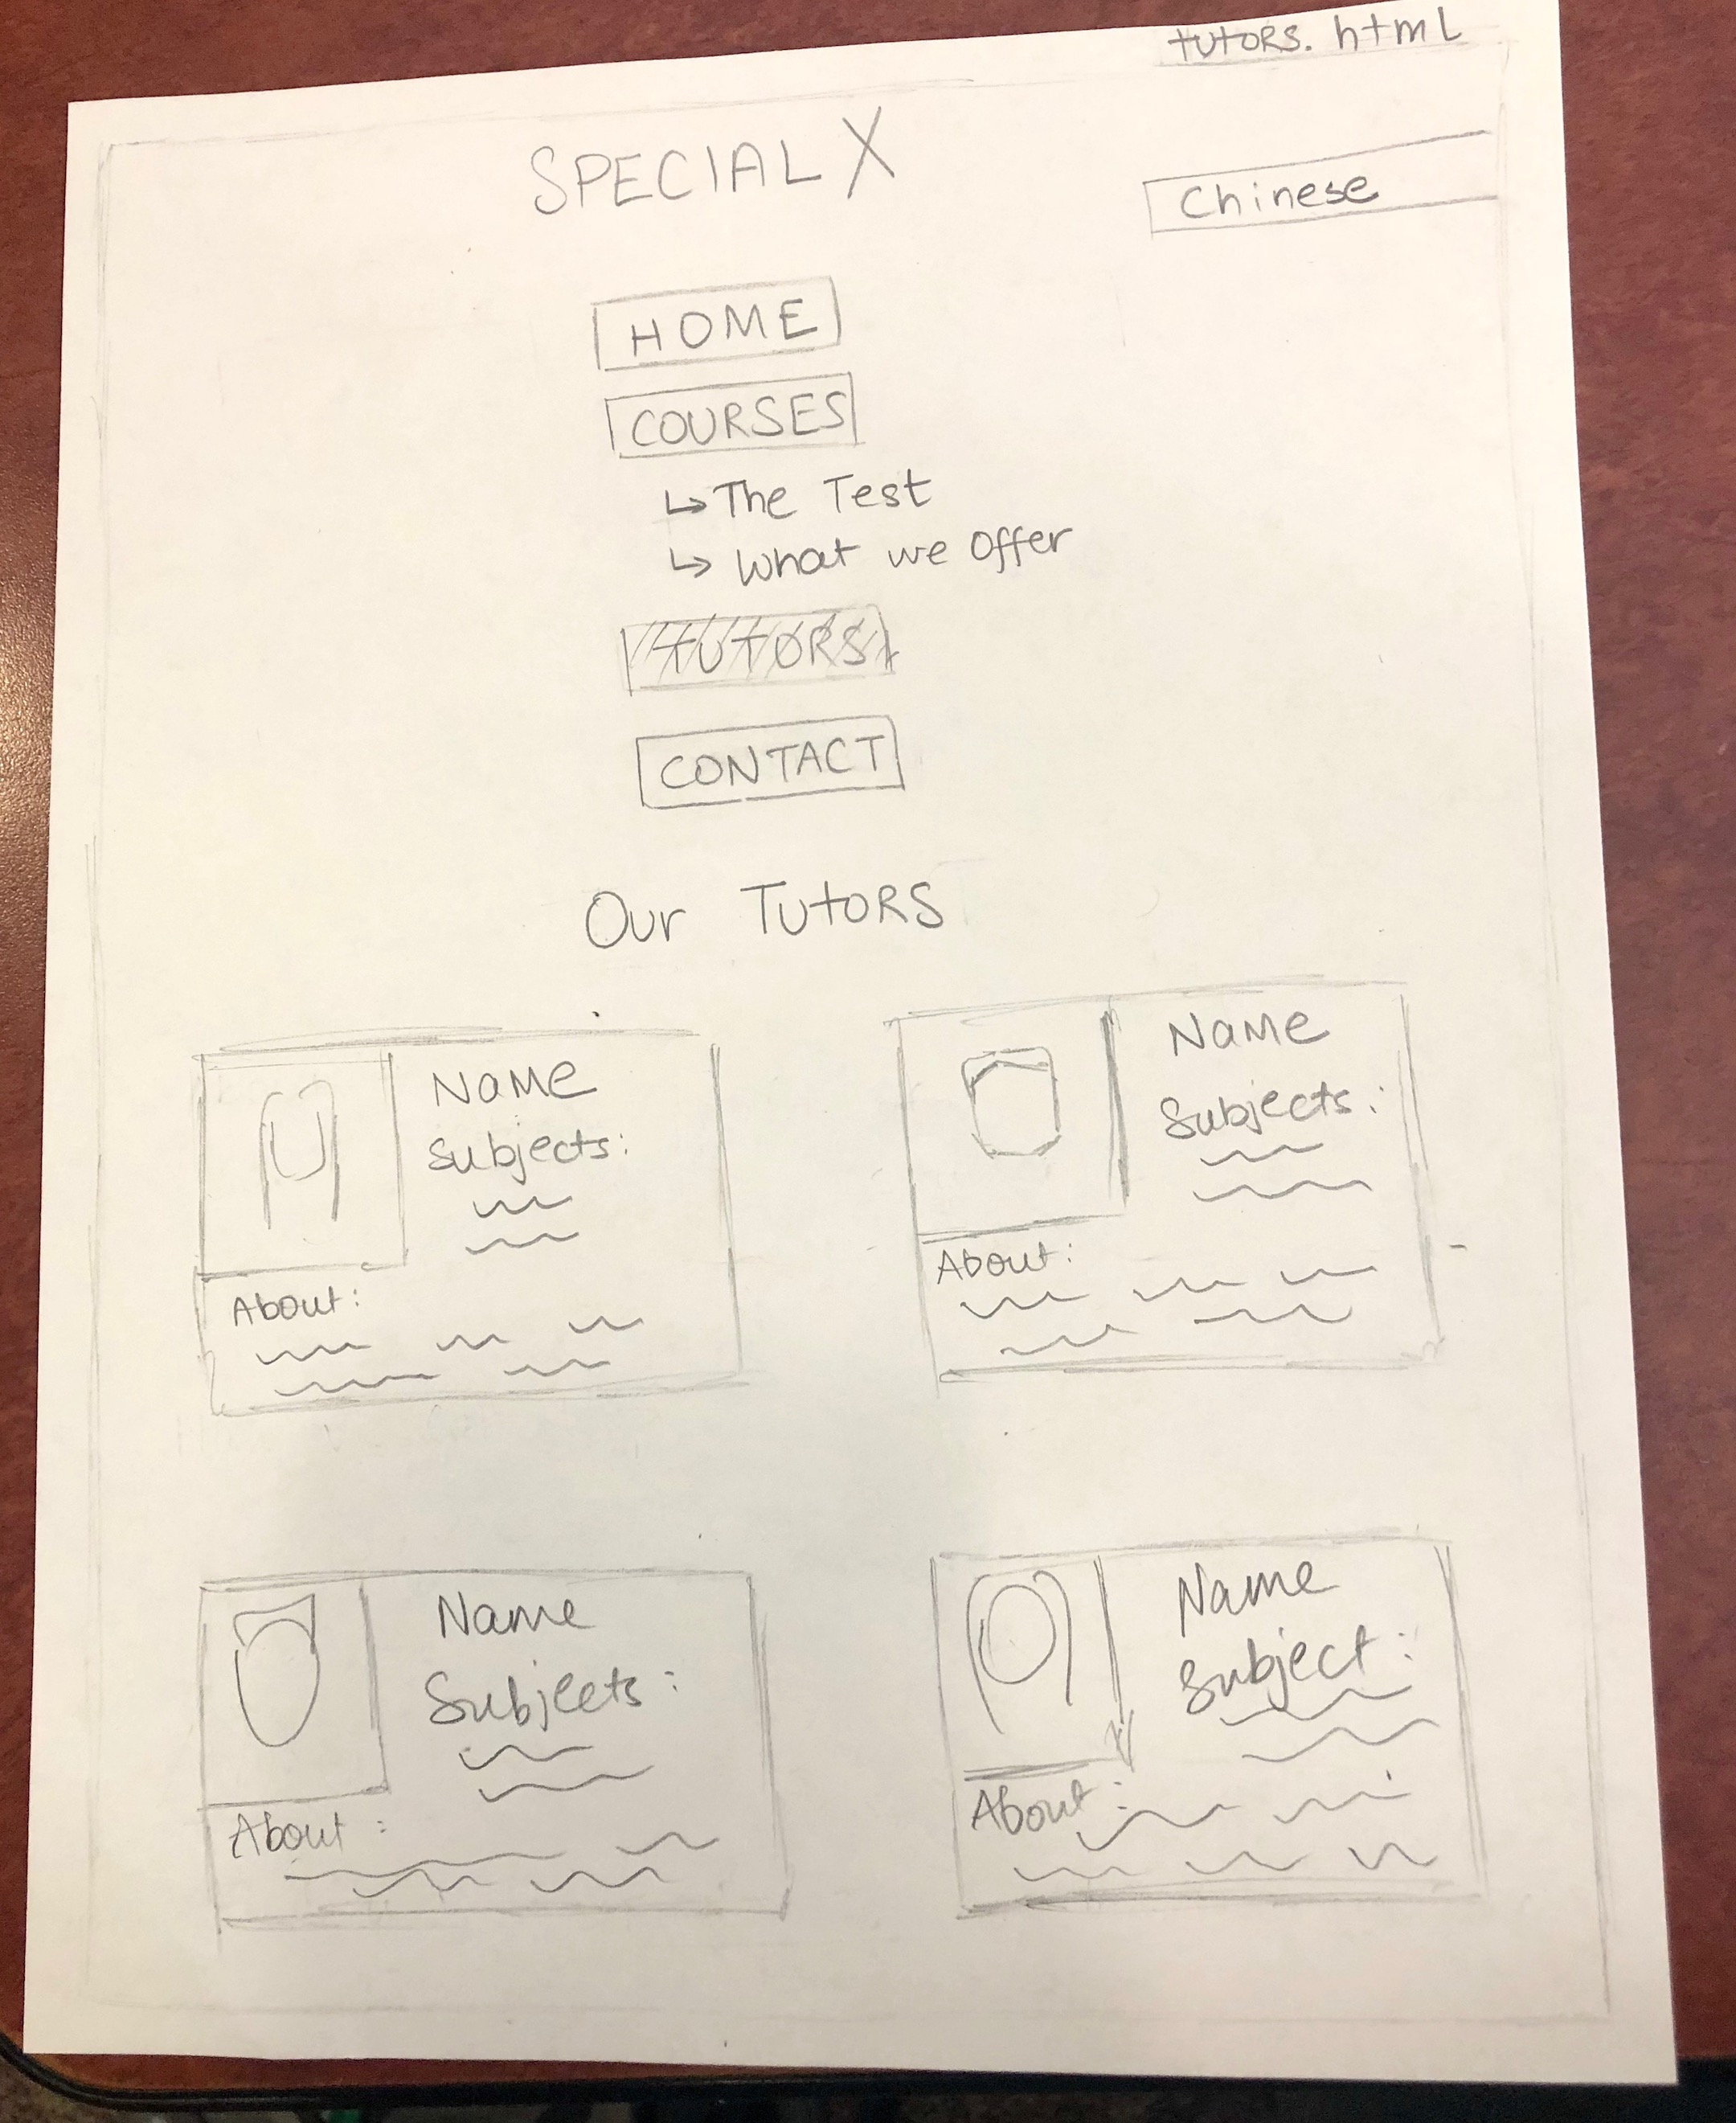 tutors. html
SPECIAL X
Chinese
HOME
COURSES
↳ The Test
↳ What we offer
TUTORS
CONTACT
Our Tutors
Name
Subjects:
About:
Name
Subjects:
About:
Name
Subjects:
About:
Name
Subject:
About: